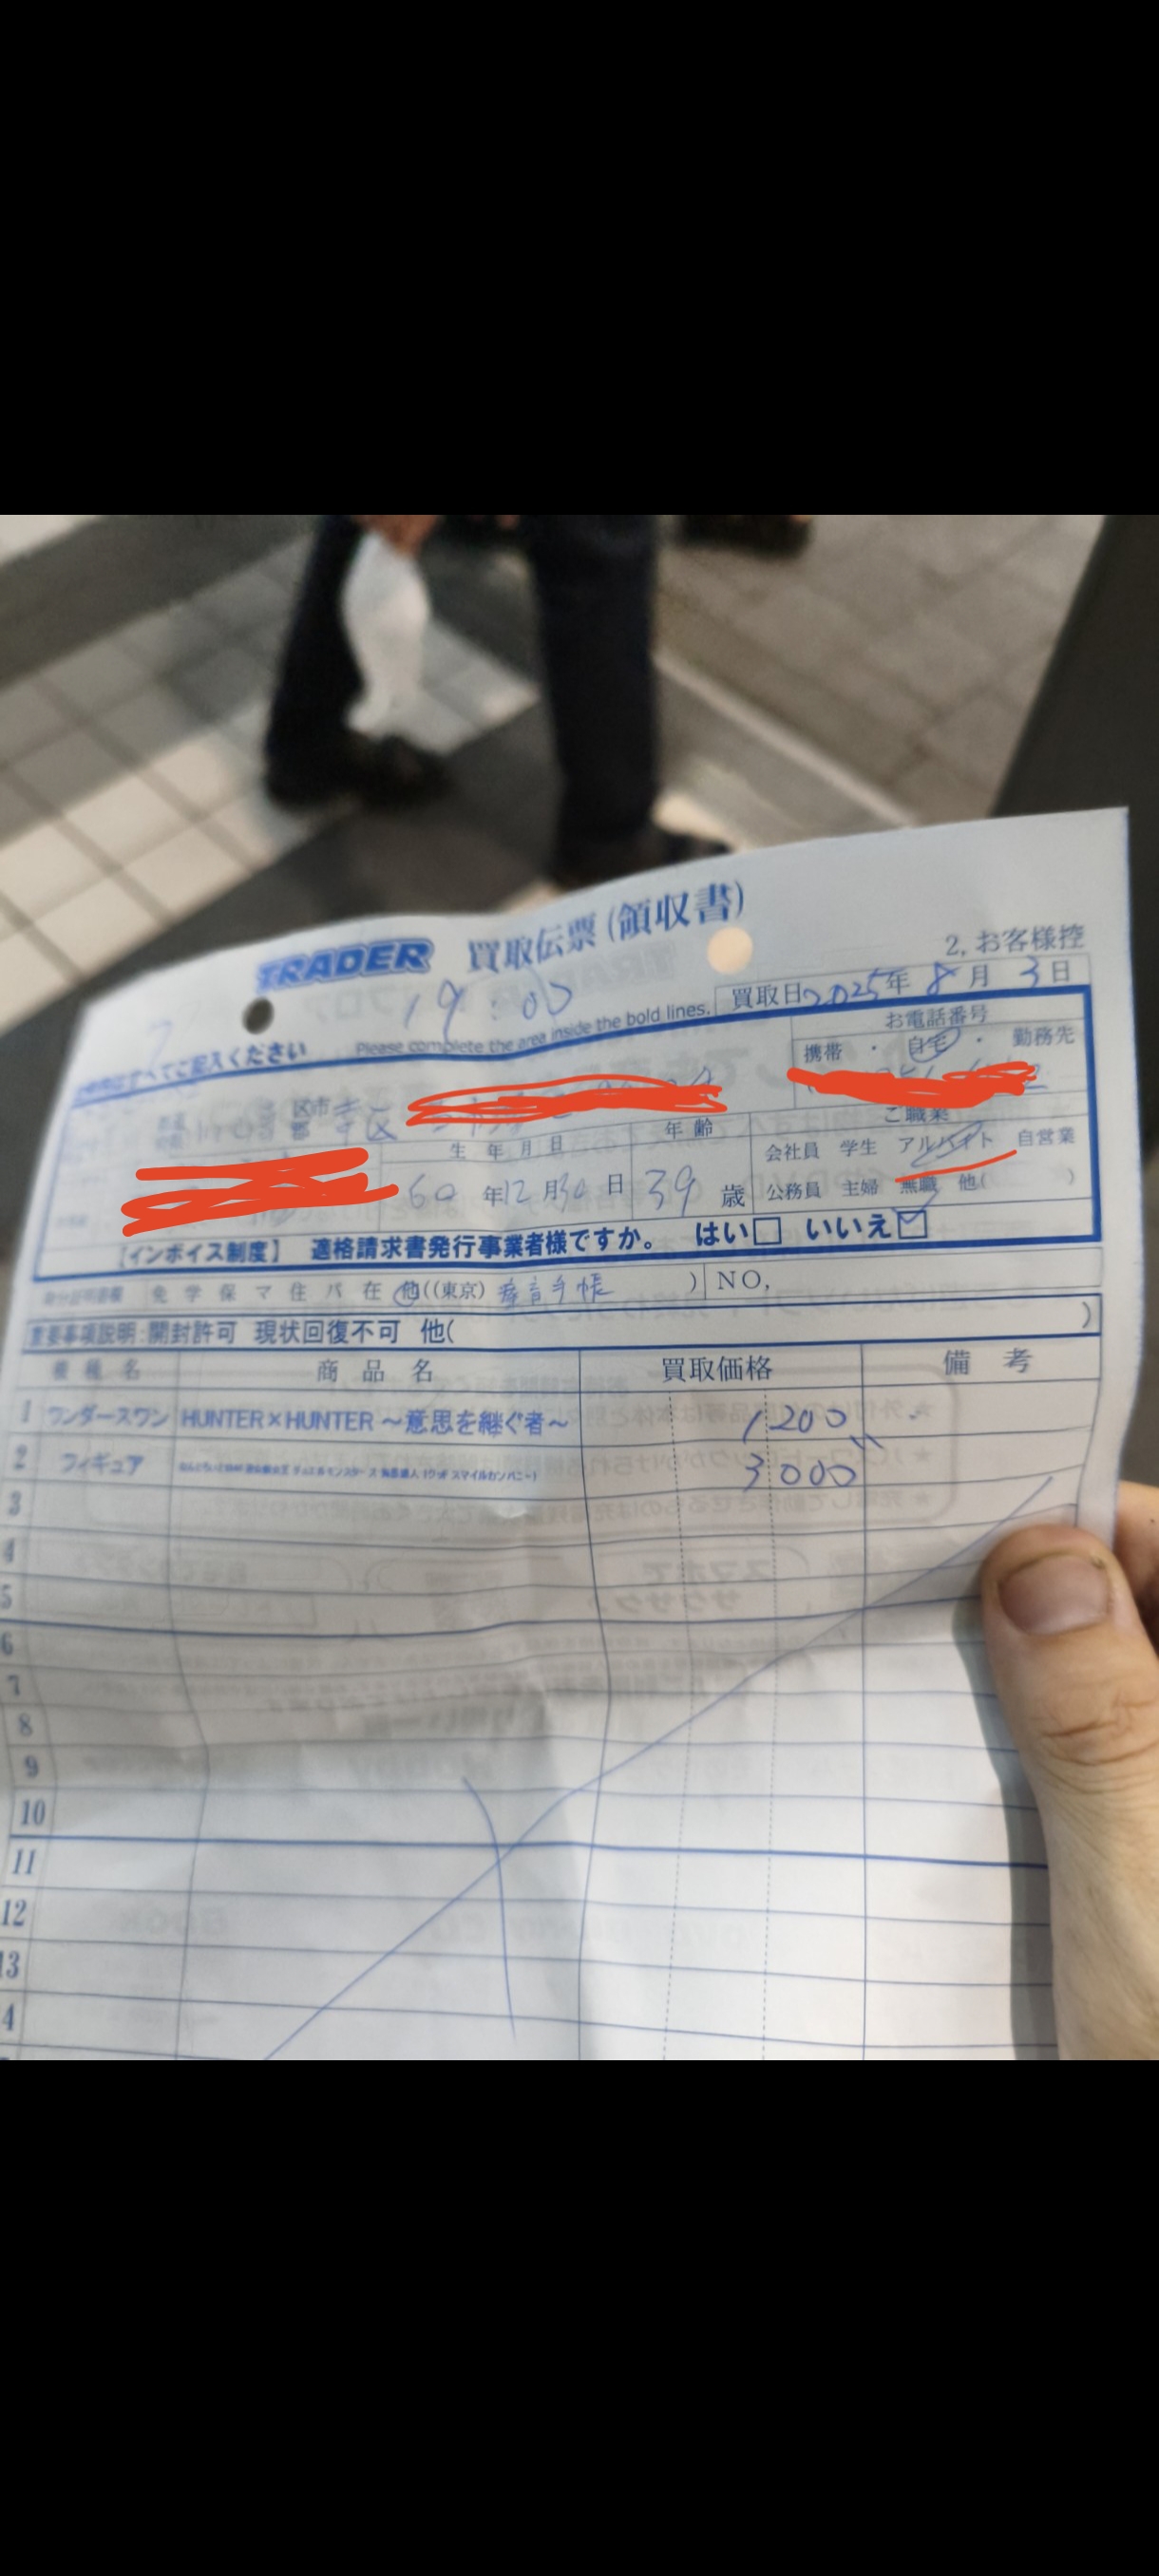 TRADER 買取伝票(領収書)
2, お客様控
19:00
買取日 2025年 8月 3日
すべてご記入ください Please complete the area inside the bold lines.
お電話番号
携帯 ・ 自宅 ・ 勤務先
区市
郡
生年月日 年齢 ご職業
会社員 学生 アルバイト 自営業
60年12月30日 39歳
公務員 主婦 無職 他( )
【インボイス制度】 適格請求書発行事業者様ですか。 はい□ いいえ☑
免 学 保 マ 住 パ 在 他((東京) 手帳 ) NO,
重要事項説明:開封許可 現状回復不可 他( )
機種名 商品名 買取価格 備考
1 ワンダースワン HUNTER×HUNTER ～意思を継ぐ者～ 1200
2 フィギュア 3000
3
4
5
6
7
8
9
10
11
12
13
4